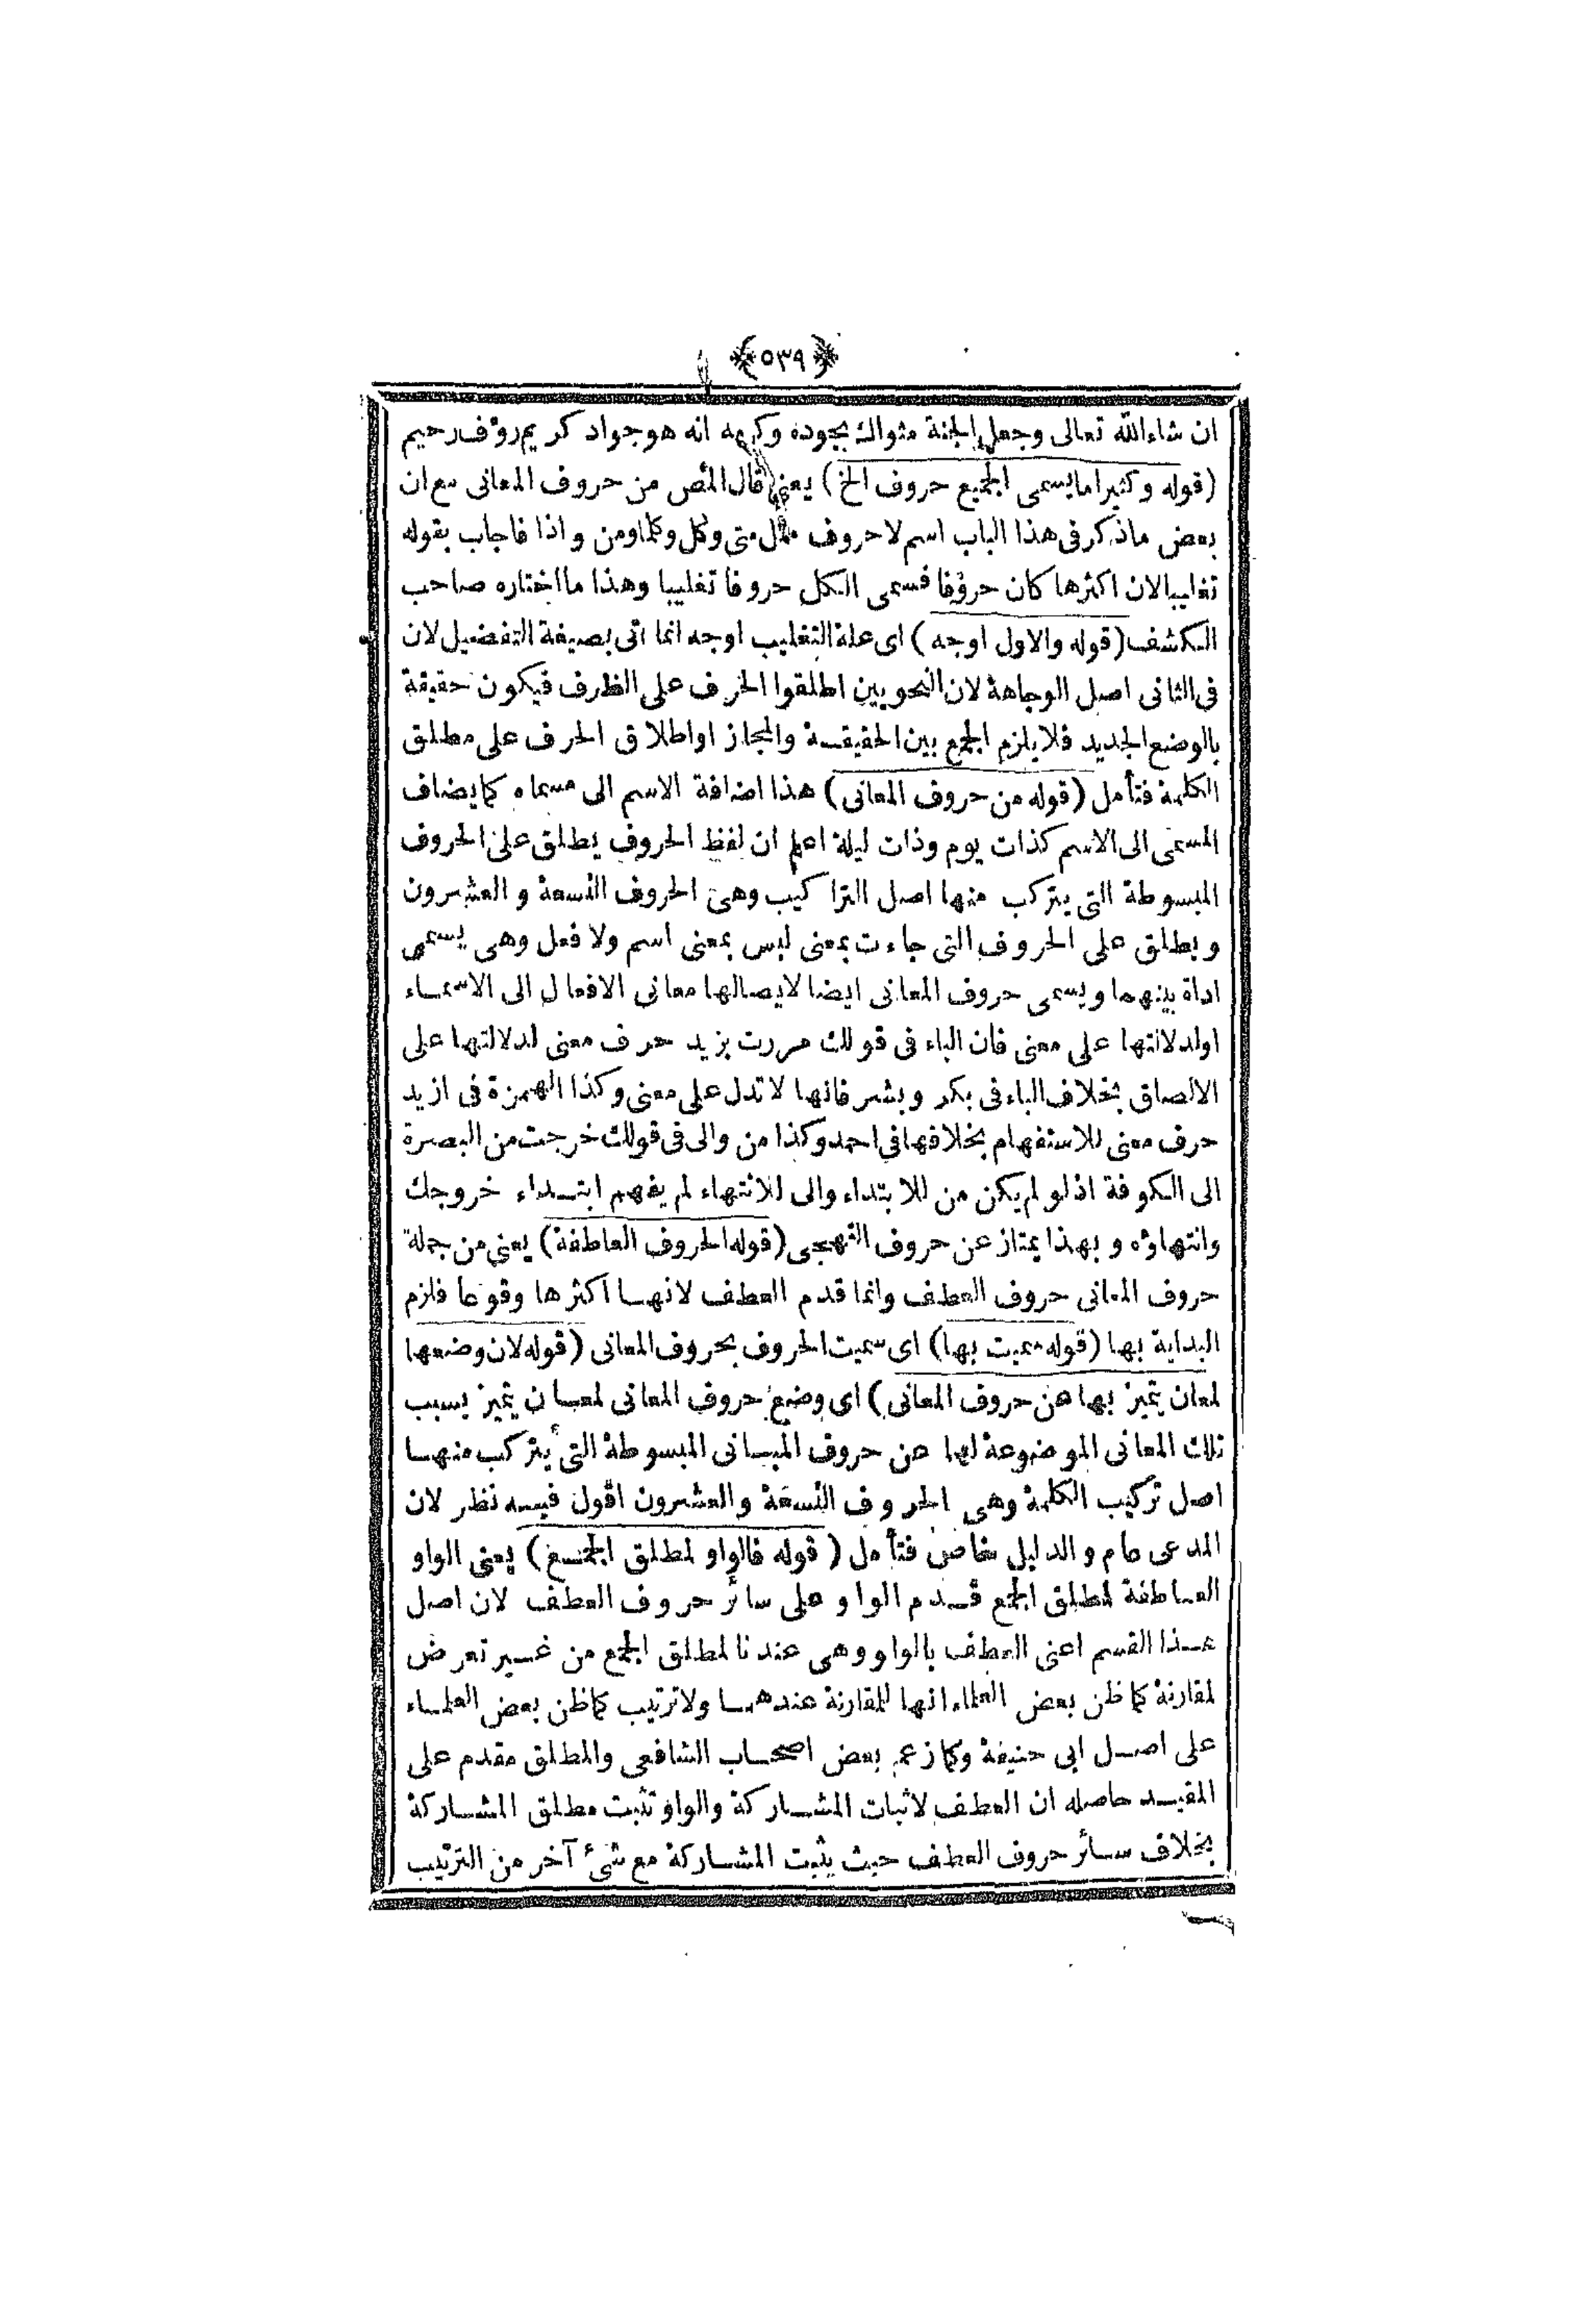 ﴿٥٣٩﴾
ان شاء الله تعالى وجعل الجنة مثواك بجوده وكرمه انه هو جواد كريم رؤف رحيم
(قوله وكثيرا ما يسمى الجميع حروف الخ) يعنى قال المص من حروف المعانى مع ان
بعض ما ذكر فى هذا الباب اسم لا حروف مثال متى وكل وكلما ومن واذا فاجاب بقوله
تغليبا لان اكثرها كان حروفا فسمى الكل حروفا تغليبا وهذا ما اختاره صاحب
الكشف (قوله والاول اوجه) اى علة التغليب اوجه انما اتى بصيغة التفضيل لان
فى الثانى اصل الوجاهة لان النحويين اطلقوا الحرف على الظرف فيكون حقيقة
بالوضع الجديد فلا يلزم الجمع بين الحقيقة والمجاز او اطلاق الحرف على مطلق
الكلمة فتأمل (قوله من حروف المعانى) هذا اضافة الاسم الى مسماه كما يضاف
المسمى الى الاسم كذات يوم وذات ليلة اعلم ان لفظ الحروف يطلق على الحروف
المبسوطة التى يتركب منها اصل التراكيب وهى الحروف التسعة والعشرون
ويطلق على الحروف التى جاءت بمعنى ليس بمعنى اسم ولا فعل وهى يسمى
اداة بينهما ويسمى حروف المعانى ايضا لايصالها معانى الافعال الى الاسماء
او لدلالتها على معنى فان الباء فى قولك مررت بزيد حرف معنى لدلالتها على
الالصاق بخلاف الباء فى بكر وبشر فانها لا تدل على معنى وكذا الهمزة فى ازيد
حرف معنى للاستفهام بخلافها فى احمد وكذا من والى فى قولك خرجت من البصرة
الى الكوفة اذ لو لم يكن من للابتداء والى للانتهاء لم يفهم ابتداء خروجك
وانتهاؤه وبهذا يمتاز عن حروف التهجى (قوله الحروف العاطفة) يعنى من جملة
حروف المعانى حروف العطف وانما قدم العطف لانها اكثرها وقوعا فلزم
البداية بها (قوله سميت بها) اى سميت الحروف بحروف المعانى (قوله لان وضعها
لمعان يتميز بها عن حروف المعانى) اى وضع حروف المعانى لمعان يتميز بسبب
تلك المعانى الموضوعة لها عن حروف المبانى المبسوطة التى يتركب منها
اصل تركيب الكلمة وهى الحروف التسعة والعشرون اقول فيه نظر لان
المدعى عام والدليل خاص فتأمل (قوله فالواو لمطلق الجمع) يعنى الواو
العاطفة لمطلق الجمع قدم الواو على سائر حروف العطف لان اصل
هذا القسم اعنى العطف بالواو وهى عندنا لمطلق الجمع من غير تعرض
لمقارنة كما ظن بعض العلماء انها للمقارنة عندهما ولا ترتيب كما ظن بعض العلماء
على اصل ابى حنيفة وكما زعم بعض اصحاب الشافعى والمطلق مقدم على
المقيد حاصله ان العطف لاثبات المشاركة والواو تثبت مطلق المشاركة
بخلاف سائر حروف العطف حيث يثبت المشاركة مع شئ آخر من الترتيب